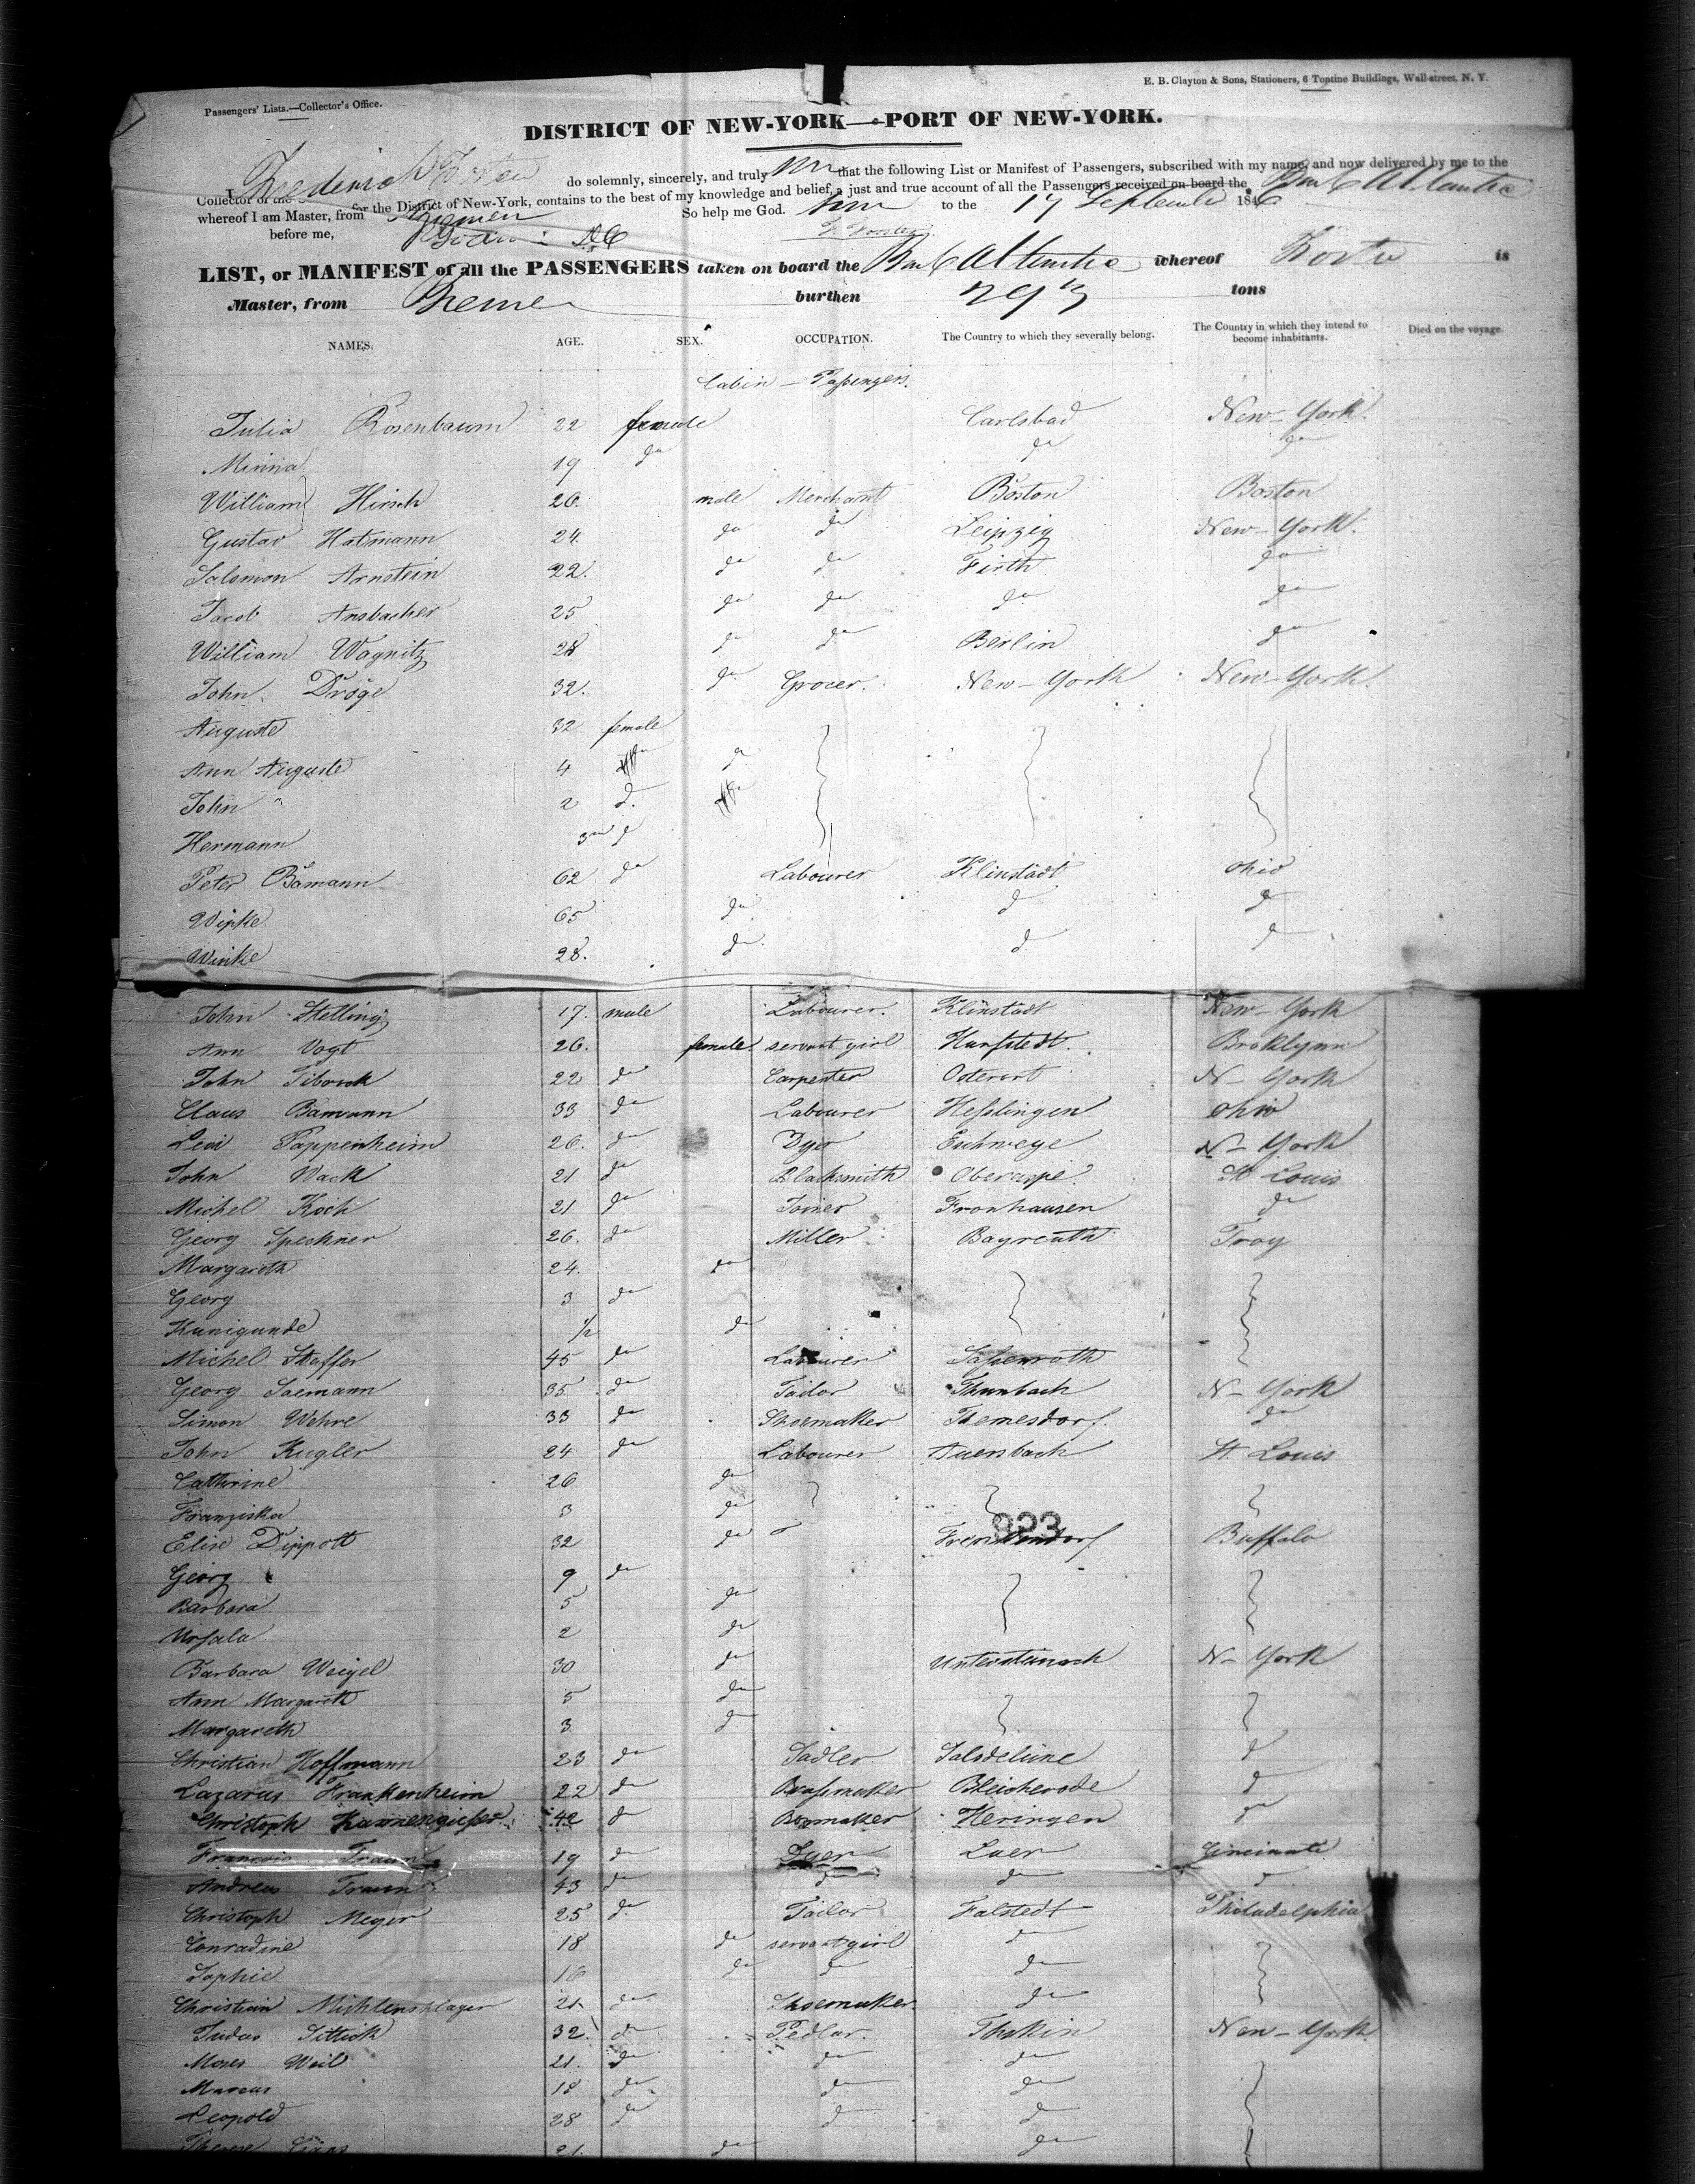 E. B. Clayton & Sons, Stationers, 6 Tontine Buildings, Wall-street, N. Y.
Passengers' Lists.—Collector's Office.
DISTRICT OF NEW-YORK—PORT OF NEW-YORK.
I, do solemnly, sincerely, and truly that the following List or Manifest of Passengers, subscribed with my name, and now delivered by me to the
Collector of the for the District of New-York, contains to the best of my knowledge and belief, a just and true account of all the Passengers received on board the Bark Atlantic
whereof I am Master, from Bremen So help me God. to the 17 September 1846
before me,
LIST, or MANIFEST of all the PASSENGERS taken on board the Bark Atlantic whereof is
Master, from Bremen burthen tons
NAMES. AGE. SEX. OCCUPATION. The Country to which they severally belong. The Country in which they intend to become inhabitants. Died on the voyage.
Cabin – Passengers.
Julia Rosenbaum 22 female Carlsbad New-York.
Minna 19 do do do
William Hirsch 26. male Merchant Boston Boston
Gustav Hatmann 24. do do Leipzig New-York.
Salomon Arnstein 22. do do Fürth do
Jacob Ansbacher 25 do do do do
William Wagnitz 28 do do Berlin do
John Dröge 32. do Grocer. New-York New-York.
Auguste 32 female
Ann Auguste 4 do
John " 2 d.
Hermann 3 m d
Peter Bamann 62 do Labourer Klinstadt Ohio
Wipke 65 do d d
Winke 28. do d d
John Stelling 17. male Labourer. Klinstadt New-York
Ann Vogt 26. female servant girl Brooklynn
John 22 do Carpenter Osterort N-York
Claus Bamann 33 do Labourer Hesslingen Ohio
Levi Pappenheim 26. do Dyer Eschwege N-York
John Wack 21 do Blacksmith Oberaspe St Louis
Michel Koch 21 do Joiner Fronhausen do
Georg Spechner 26. do Miller Bayreuth Troy
Margareth 24. do
Georg 3 do
Kunigunde 1/2 do
Michel Staffer 45 do Labourer
Georg Saemann 35 do Tailor Thunbach N-York
Simon Wehre 33 do Shoemaker do
John Kugler 24 do Labourer Auerbach St. Louis
Catherine 26 do
Franziska 3 do
923
Elise Dippolt 32 do Buffalo
Georg 9 do
Barbara 5 do
Ursala 2 do
Barbara Weigel 30 do N-York
Ann Margareth 5 do
Margareth 3 d
Christian Hoffmann 23 do Sadler d
Lazarus Frankenheim 22 do Bleicherode d
Christoph 42 d Heringen do
Traum 19 do Dyer Luer Cincinate
Andreas Traum 43 do do do d
Christoph Meyer 25 do Tailor Falstedt Philadelphia
Conradine 18 do servantgirl do
Sophie 16 do do do
Christian Mühlenschlager 21. do Shoemaker. do
Judas Sittich 32. do Pedlar. New-York
Moses Weil 21. do do do
Marcus 18 do do do
Leopold 28 do d do
Therese 21. do do